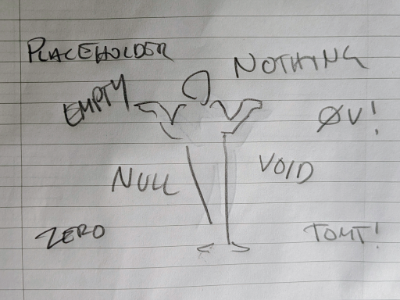 PLACEHOLDER
NOTHING
EMPTY
ØV!
NULL
VOID
ZERO
TOMT!